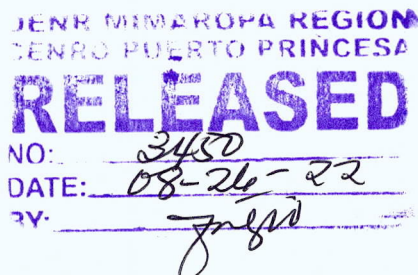 DENR MIMAROPA REGION
CENRO PUERTO PRINCESA
RELEASED
NO: 3450
DATE: 08-26-22
BY: